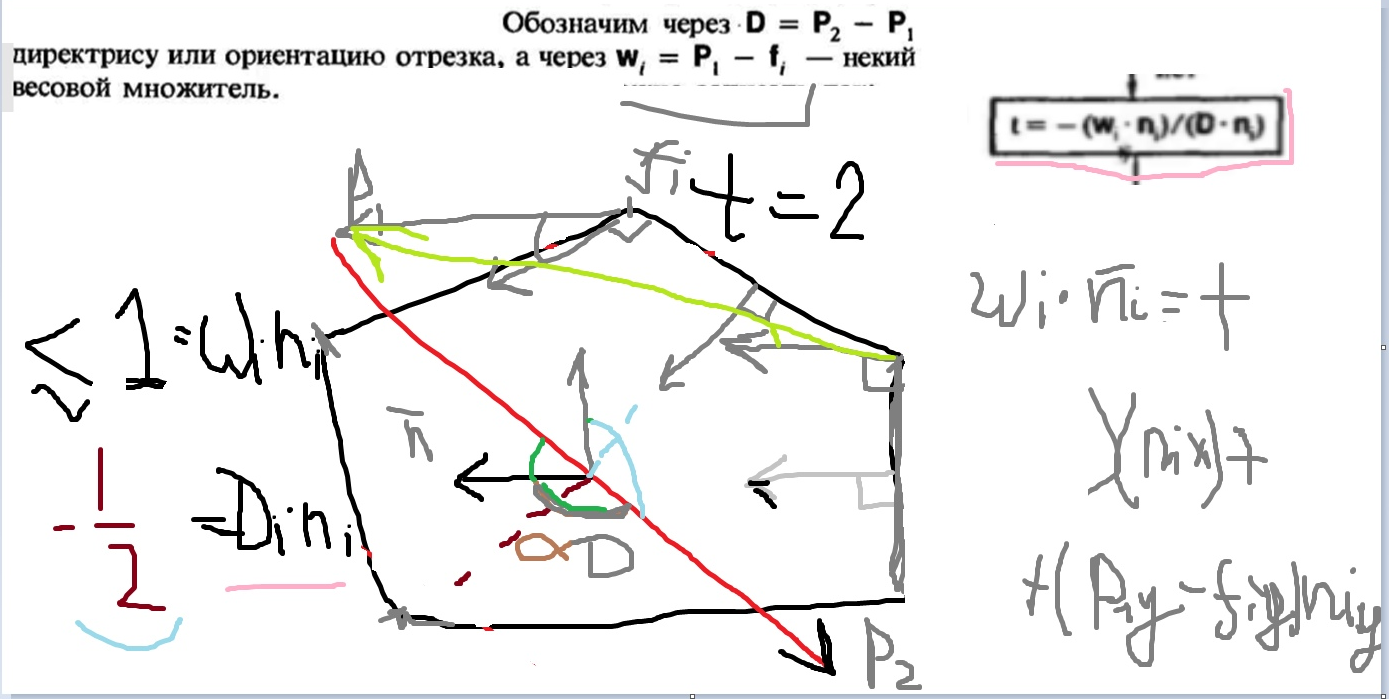 Обозначим через D = P₂ − P₁
директрису или ориентацию отрезка, а через wᵢ = P₁ − fᵢ — некий
весовой множитель.
t = −(wᵢ · nᵢ)/(D · nᵢ)
P₁
fᵢ
t = 2
wᵢ · n̄ᵢ = t
< 1 = wᵢnᵢ
n̄
)(nᵢx)+
-1/2 = Dᵢnᵢ
α D
+(P₁y − fᵢy)nᵢy
P₂